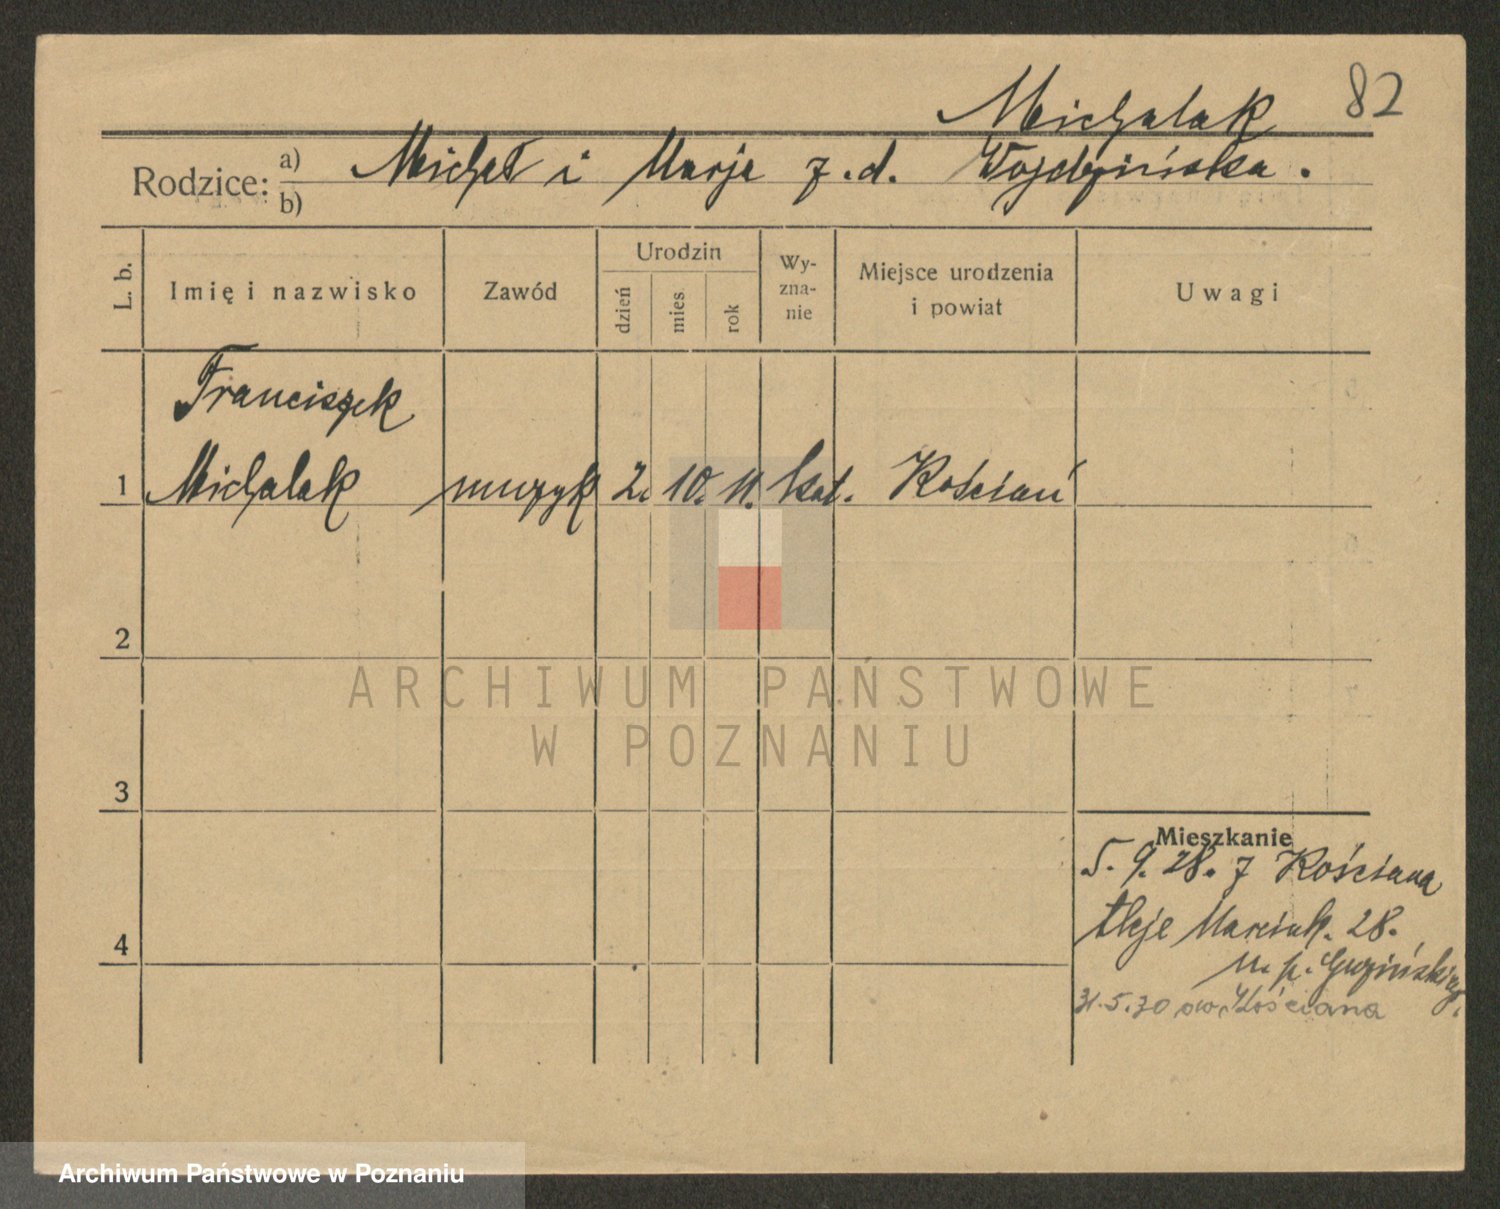 82
Michalak
Rodzice: a) Michał i Marja z.d. Wojdzińska.
b)
L. b. Imię i nazwisko Zawód Urodzin dzień mies. rok Wy-zna-nie Miejsce urodzenia i powiat Uwagi
Franciszek
1 Michalak muzyk 2. 10. 11. kat. Kościan
2
ARCHIWUM PAŃSTWOWE
W POZNANIU
3
Mieszkanie
5. 9. 28. z Kościana
Aleje Marcink. 28.
4
u. p.
31.5.30 do Kościana
Archiwum Państwowe w Poznaniu